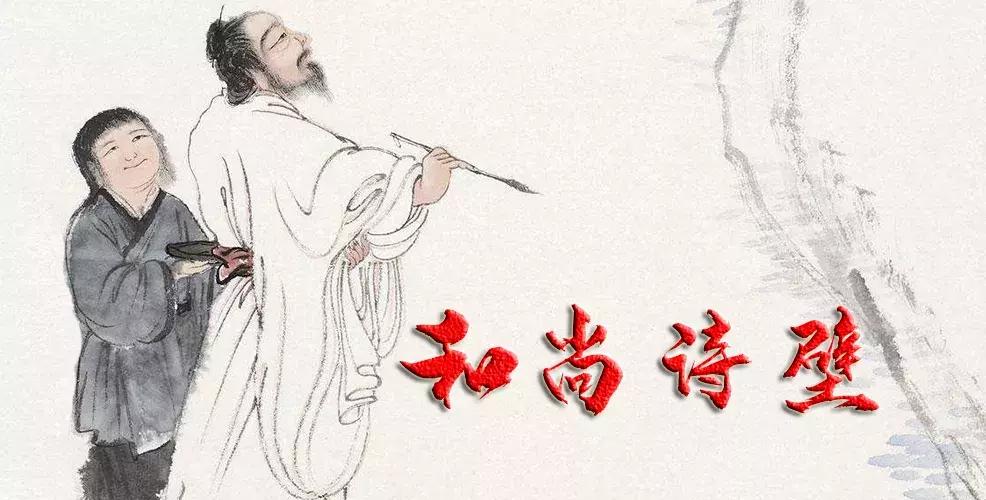 和尚诗壁